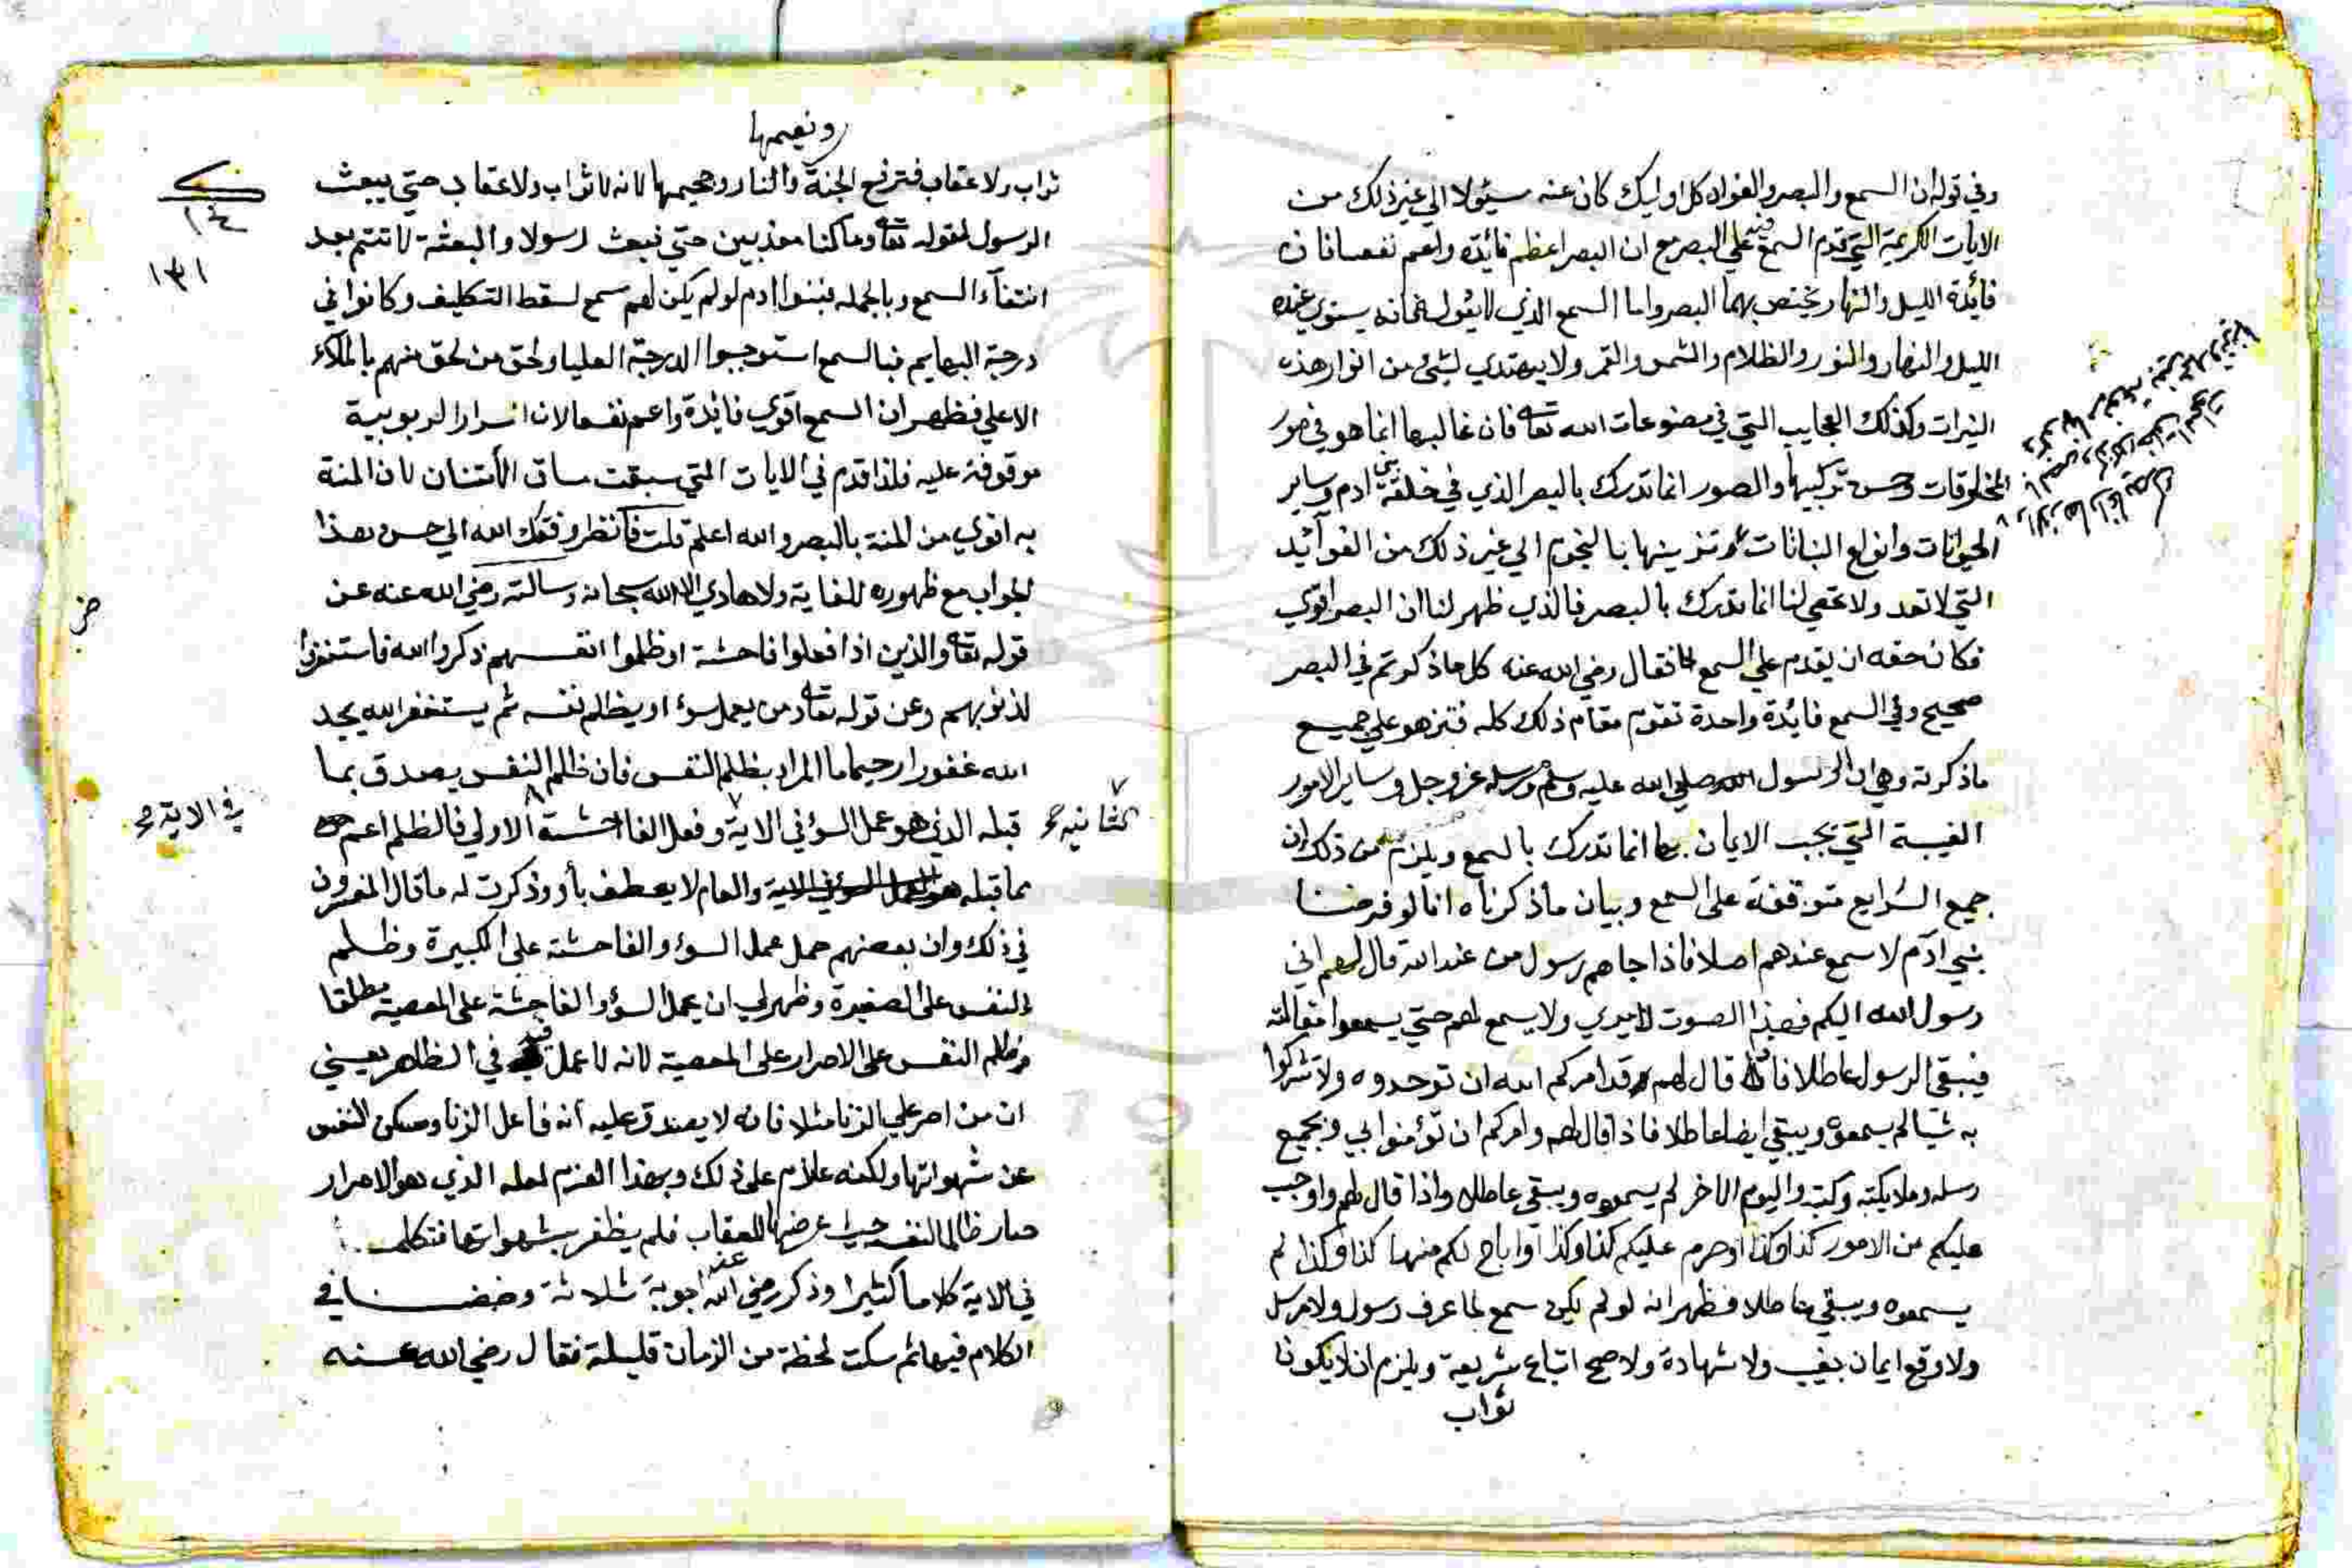 وفي قوله ان السمع والبصر والفواد كل اوليك كان عنه مسئولا الي غير ذلك من
الايات الكريمة التي تقدم السمع فيها علي البصر مع ان البصر اعظم فائدة واعم نفعا فان
فائدة الليل والنهار يختص بهما البصر واما السمع الذي لا بصر له فانه يستوي عنده
الليل والنهار والنور والظلام والشمس والقمر ولا يهتدي لشئ من انوار هذه
النيرات وكذلك العجايب التي في مصنوعات الله تعالى فان غالبها انما هو في صور
المخلوقات وحسن تركيبها والصور انما تدرك بالبصر الذي في خلقة بني ادم وساير
الحيوانات وانواع النباتات وتزيينها بالنجوم الي غير ذلك من الفوائد
التي لا تعد ولا تحصي لنا انما تدرك بالبصر فالذي ظهر لنا ان البصر اقوي
فكان حقه ان يقدم علي السمع فقال رضي الله عنه كل ما ذكرتم في البصر
صحيح وفي السمع فائدة واحدة تقوم مقام ذلك كله فتزهو علي جميع
ما ذكرته وهي ان الرسول صلي الله عليه وسلم ومرسله عز وجل وساير الامور
الغيبة التي يجب الايمان بها انما تدرك بالسمع ويلزم من ذلك ان
جميع الشرايع متوقفة على السمع وبيان ما ذكرناه انا لو فرضنا
بني ادم لا سمع عندهم اصلا فاذا جاهم رسول من عند الله قال لهم اني
رسول الله اليكم فهذا الصوت لا يدري ولا يسمع لهم حتي يسمعوا مقالته
فيبقي الرسول عاطلا فاذا قال لهم وقد امركم الله ان توحدوه ولا تشركوا
به شيا لم يسمعوه ويبقي ايضا عاطلا فاذا قال لهم وامركم ان تؤمنوا بي وبجميع
رسله وملايكته وكتبه واليوم الاخر لم يسمعوه ويبقي عاطلا واذا قال لهم واوجب
عليكم من الامور كذا وكذا او حرم عليكم كذا وكذا واباح لكم منها كذا وكذا لم
يسمعوه ويبقي عاطلا فظهر انه لو لم يكن سمع لما عرف رسول ولا مرسل
ولا وقع ايمان بغيب ولا شهادة ولا صح اتباع شريعة ويلزم ان لا يكون
ثواب
ونعيمها
ثواب ولا عقاب فترتفع الجنة والنار وجحيمها لانه لا ثواب ولا عقاب حتي يبعث
الرسول لقوله تعالى وما كنا معذبين حتي نبعث رسولا والبعثة لا تتم بعد
انتفاء السمع وبالجملة فبنوا ادم لو لم يكن لهم سمع لسقط التكليف وكانوا في
درجة البهايم فبالسمع استوجبوا الدرجة العليا ولحق من لحق منهم بالملاء
الاعلي فظهر ان السمع اقوي فائدة واعم نفعا لان اسرار الربوبية
موقوفة عليه فلذا قدم في الايات التي سبقت مساق الامتنان لان المنة
به اقوي من المنة بالبصر والله اعلم قلت فانظر وفقك الله الي حسن هذا
الجواب مع ظهوره للغاية ولا هادي الا الله سبحانه وسالته رضي الله عنه عن
قوله تعالى والذين اذا فعلوا فاحشة او ظلموا انفسهم ذكروا الله فاستغفروا
لذنوبهم وعن قوله تعالى ومن يعمل سوءا او يظلم نفسه ثم يستغفر الله يجد
الله غفورا رحيما ما المراد بظلم النفس فان ظلم النفس يصدق بما
قبله الذي هو عمل السوء في الاية وفعل الفاحشة الاولي فالظلم اعم
الثانية صح
في الاية صح
مما قبله والعام لا يعطف بأو وذكرت له ما قال المفسرون
في ذلك وان بعضهم حمل عمل السوء والفاحشة على الكبيرة وظلم
النفس على الصغيرة وظهر لي ان عمل السوء والفاحشة على المعصية مطلقا
وظلم النفس على الاصرار على المعصية لانه لا عمل فيه في الظاهر يعني
ان من اصر علي الزنا مثلا فانه لا يصدق عليه انه فاعل الزنا ومكن النفس
عن شهواتها ولكنه عازم على ذلك وبهذا العزم لعله الذي هو الاصرار
صار ظالما لنفسه حيث عرضها للعقاب فلم يظفر بشهواتها فتكلم
في الاية كلاما كثيرا وذكر رضي الله عنه اجوبة ثلاثة وخضنا في
الكلام فيها ثم سكت لحظة من الزمان قليلة فقال رضي الله عنه
١٤
١٣١